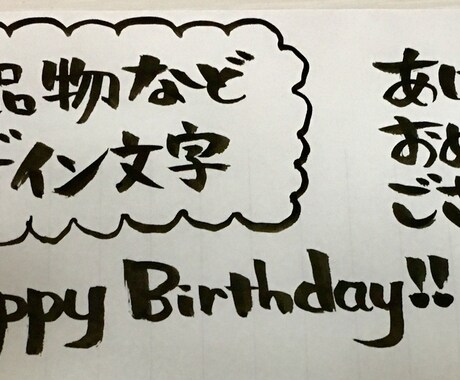 品物など
ザイン文字
あけ
おめ
ござ
appy Birthday!!